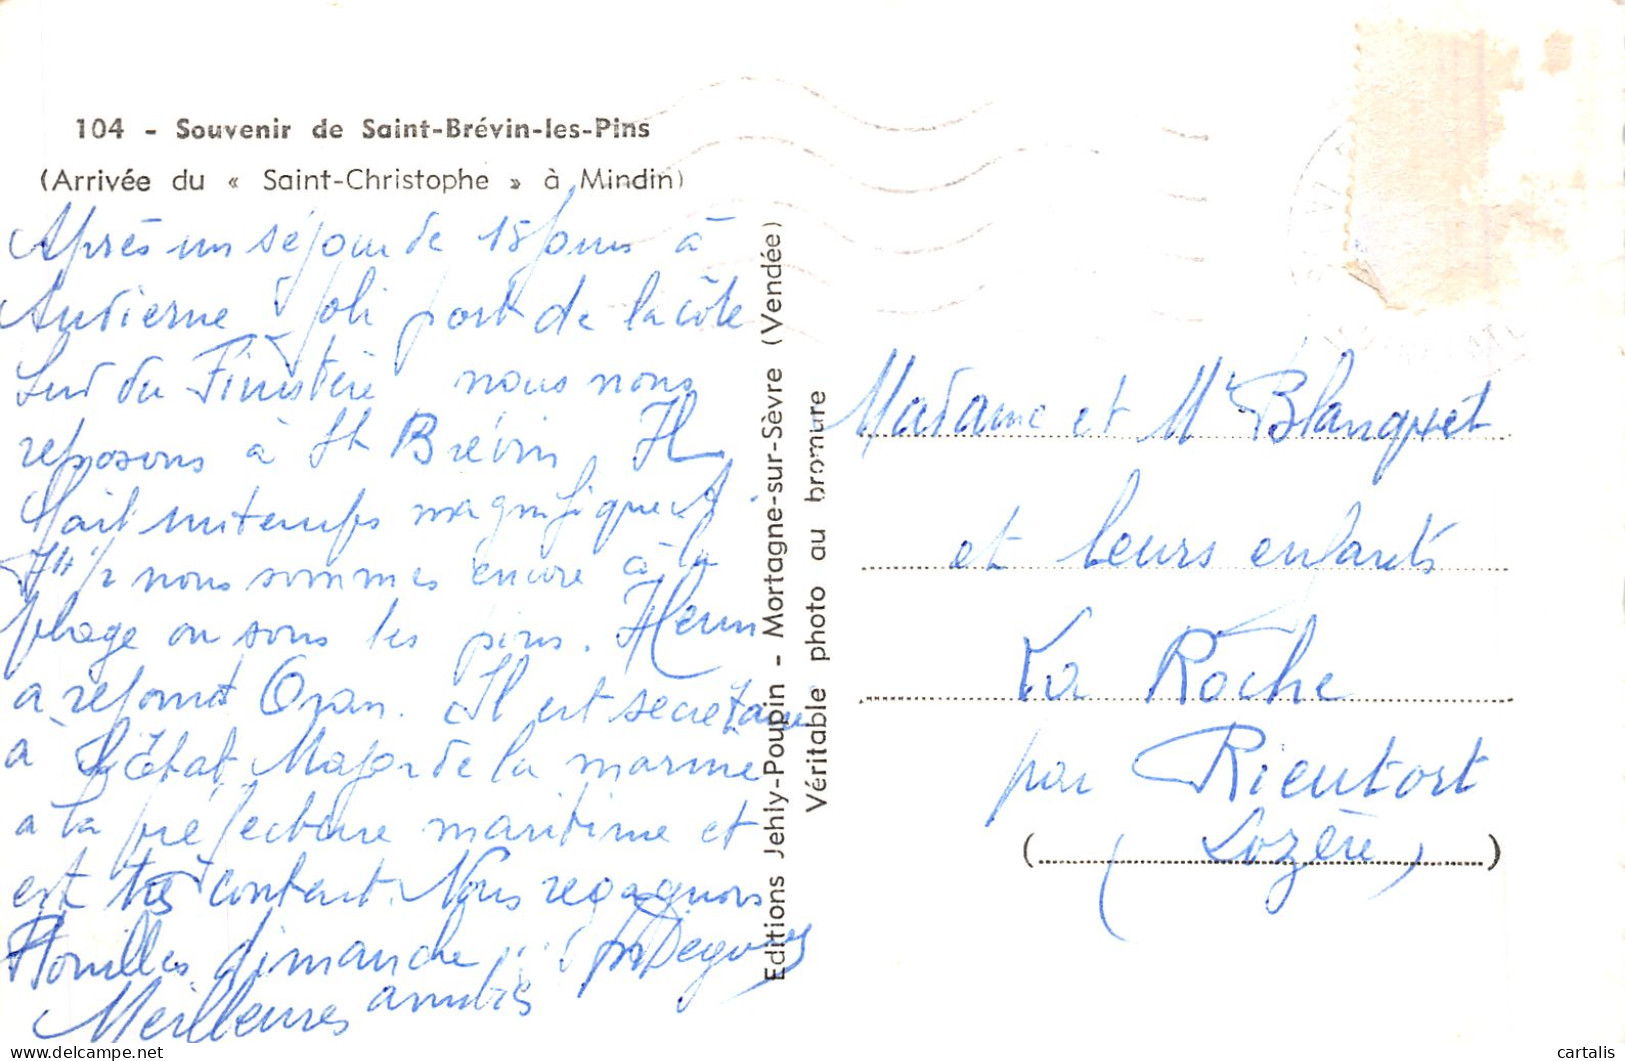 104 - Souvenir de Saint-Brévin-les-Pins
(Arrivée du « Saint-Christophe » à Mindin)
Après un séjour de 15 jours à
Audierne joli port de la côte
Sud du Finistère nous nous
reposons à St Brévin. Il
fait un temps magnifique et
à 7H 1/2 nous sommes encore à la
plage ou sous les pins. Henri
a rejoint Oran. Il est secrétaire
à l'Etat Major de la marine
à la préfecture maritime et
est très content. Nous regagnons
Houilles dimanche
Meilleures amitiés
Editions Jehly-Poupin - Mortagne-sur-Sèvre (Vendée)
Véritable photo au bromure
Madame et Mr Blanquet
et leurs enfants
La Roche
par Rieutort
(Lozère)
cartalis